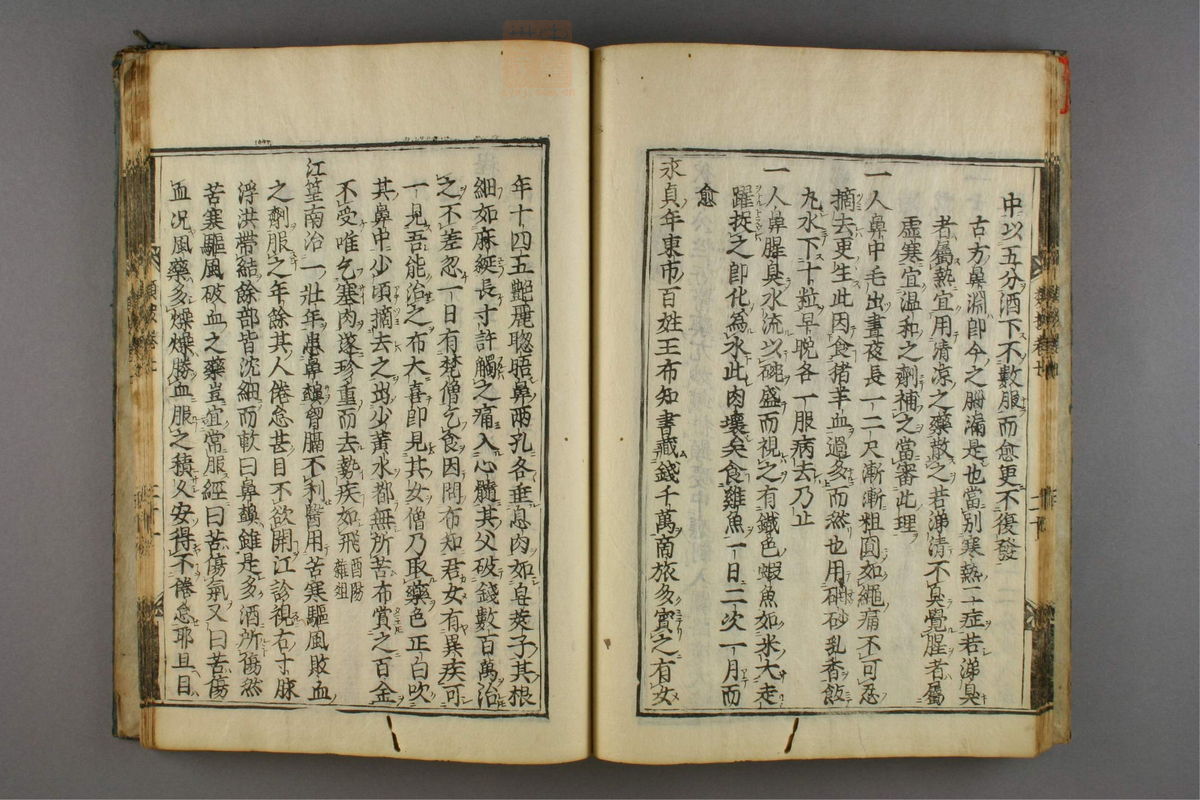 中以五分酒下不數服而愈更不復發
古方鼻淵即今之腦漏是也當別寒熱二症若涕臭
者屬熱宜用清凉之藥散之若涕清不臭覺腥者屬
虛寒宜温和之劑補之當審此理
一人鼻中毛出晝夜長一二尺漸漸粗圓如繩痛不可忍
摘去更生此因食猪羊血過多而然也用硇砂乳香飯
丸水下十粒早晩各一服病去乃止
一人鼻腥臭水流以碗盛而視之有鐵色蝦魚如米大走
躍捉之即化為水此肉壞矣食雞魚一日二次一月而
愈
永貞年東市百姓王布知書藏錢千萬商旅多賓之有女
年十四五艶麗聰晤鼻兩孔各垂息肉如皂莢子其根
細如麻綖長寸許觸之痛入心髓其父破錢數百萬治
之不差忽一日有梵僧乞食因問布知君女有異疾可
一見吾能治之布大喜即見其女僧乃取藥色正白吹
其鼻中少頃摘去之出少黄水都無所苦布賞之百金
不受唯乞塞肉遂珍重而去勢疾如飛 酉陽雜俎
江篁南治一壯年患鼻鼽胷膈不利醫用苦寒驅風敗血
之劑服之年餘其人倦怠甚目不欲開江診視右寸脉
浮洪帶結餘部皆沈細而軟曰鼻鼽雖是多酒所傷然
苦寒驅風破血之藥豈宜常服經曰苦傷氣又曰苦傷
血况風藥多燥燥勝血服之積久安得不倦怠耶且目